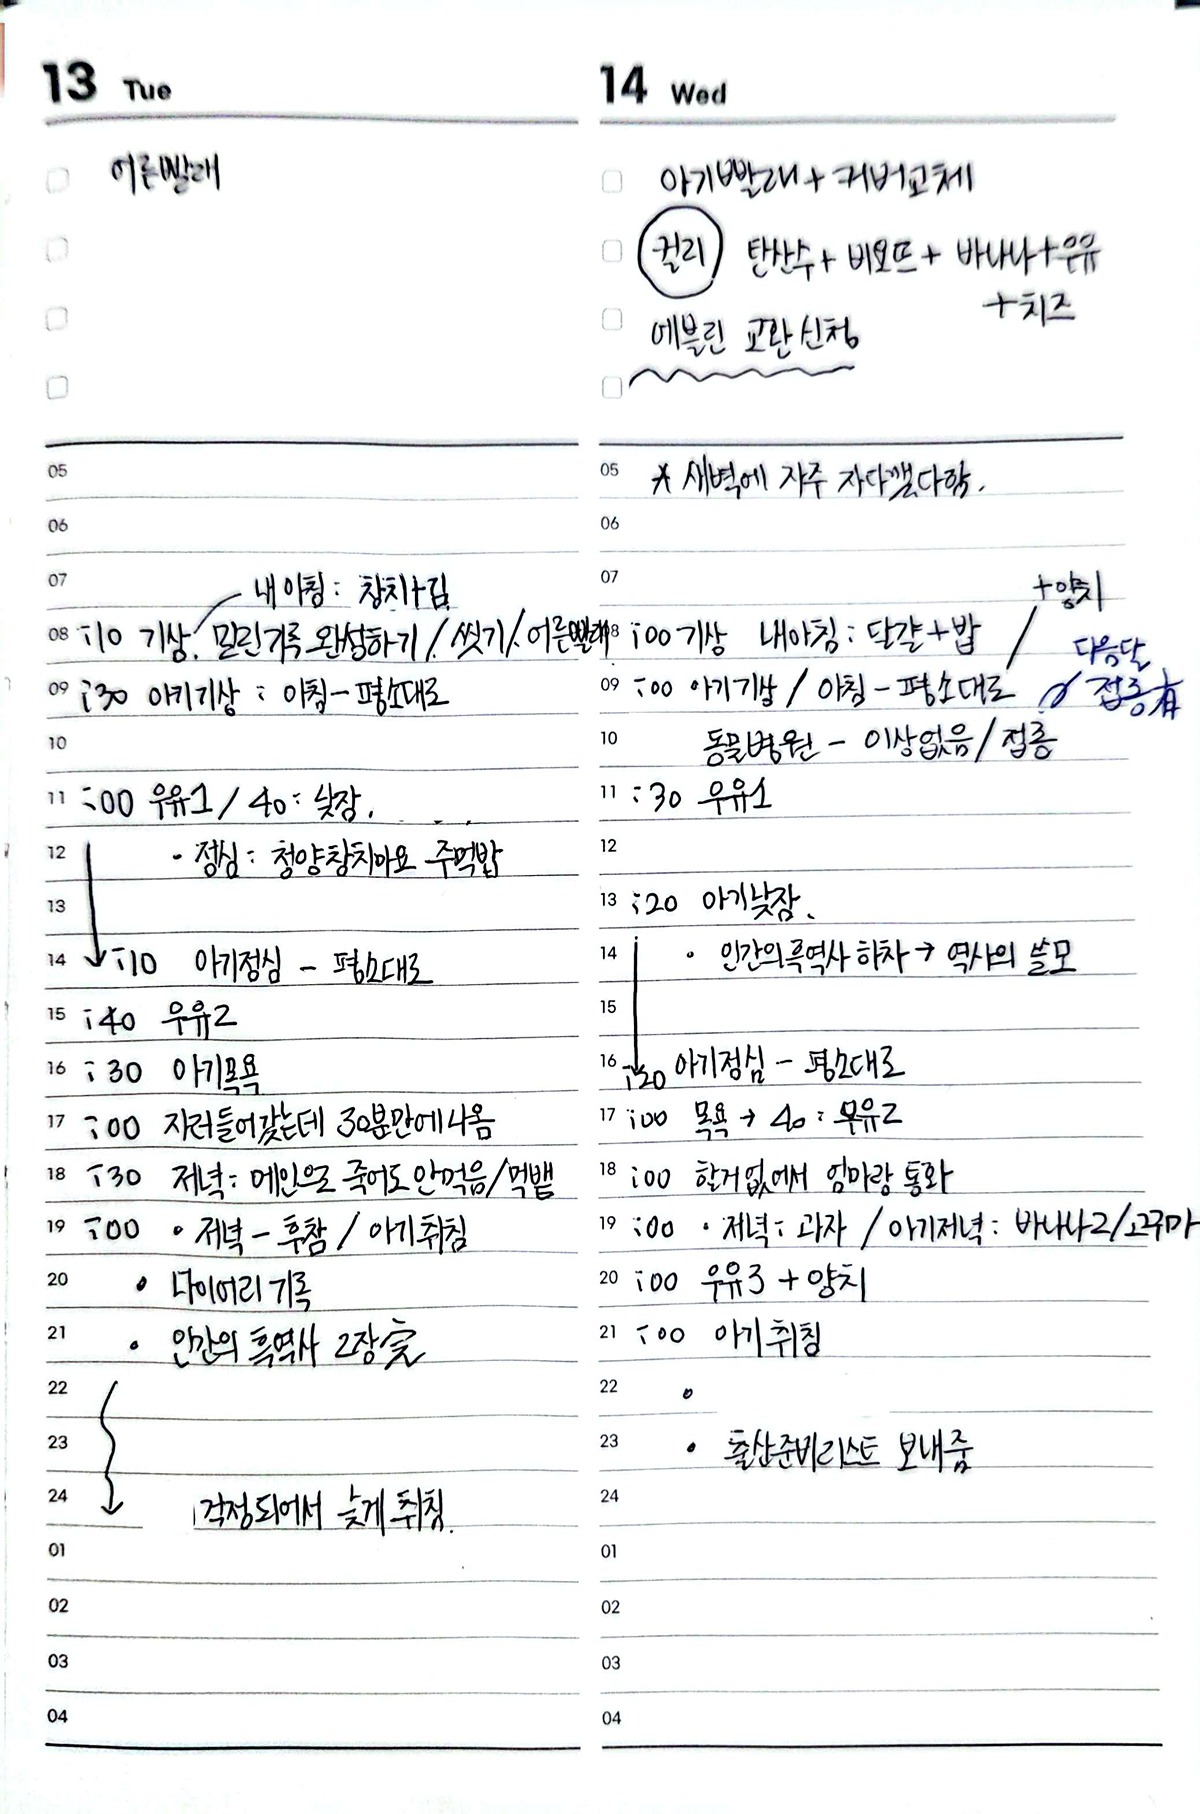 13 Tue
어른빨래
05
06
07 내 아침: 참치+김
08 :10 기상. 밀린기록 완성하기 / 씻기 / 어른빨래
09 :30 아기기상 : 아침 - 평소대로
10
11 :00 우유1 / 40: 낮잠.
12 · 점심: 청양참치마요 주먹밥
13
14 :10 아기점심 - 평소대로
15 :40 우유2
16 :30 아기목욕
17 :00 자러들어갔는데 30분만에 나옴
18 :30 저녁: 메인으로 죽어도 안먹음/먹뱉
19 :00 · 저녁 - 후참 / 아기취침
20 · 다이어리 기록
21 · 인간의 흑역사 2장 完
22
23
24 걱정되어서 늦게 취침.
01
02
03
04
14 Wed
아기빨래 + 커버교체
컬리 탄산수 + 비요뜨 + 바나나 + 우유
+ 치즈
에블린 교환신청
05 * 새벽에 자주 자다깼다함.
06
07
+양치
08 :00 기상 내아침: 달걀+밥 /
다음달
09 :00 아기기상 / 아침 - 평소대로
접종有
10 동물병원 - 이상없음 / 접종
11 :30 우유1
12
13 :20 아기낮잠.
14 · 인간의흑역사 하차 → 역사의 쓸모
15
16 :20 아기점심 - 평소대로
17 :00 목욕 → 40: 우유2
18 :00 할거없에서 엄마랑 통화
19 :00 · 저녁: 과자 / 아기저녁: 바나나2/고구마
20 :00 우유3 + 양치
21 :00 아기 취침
22 ·
23 · 출산준비리스트 보내줌
24
01
02
03
04